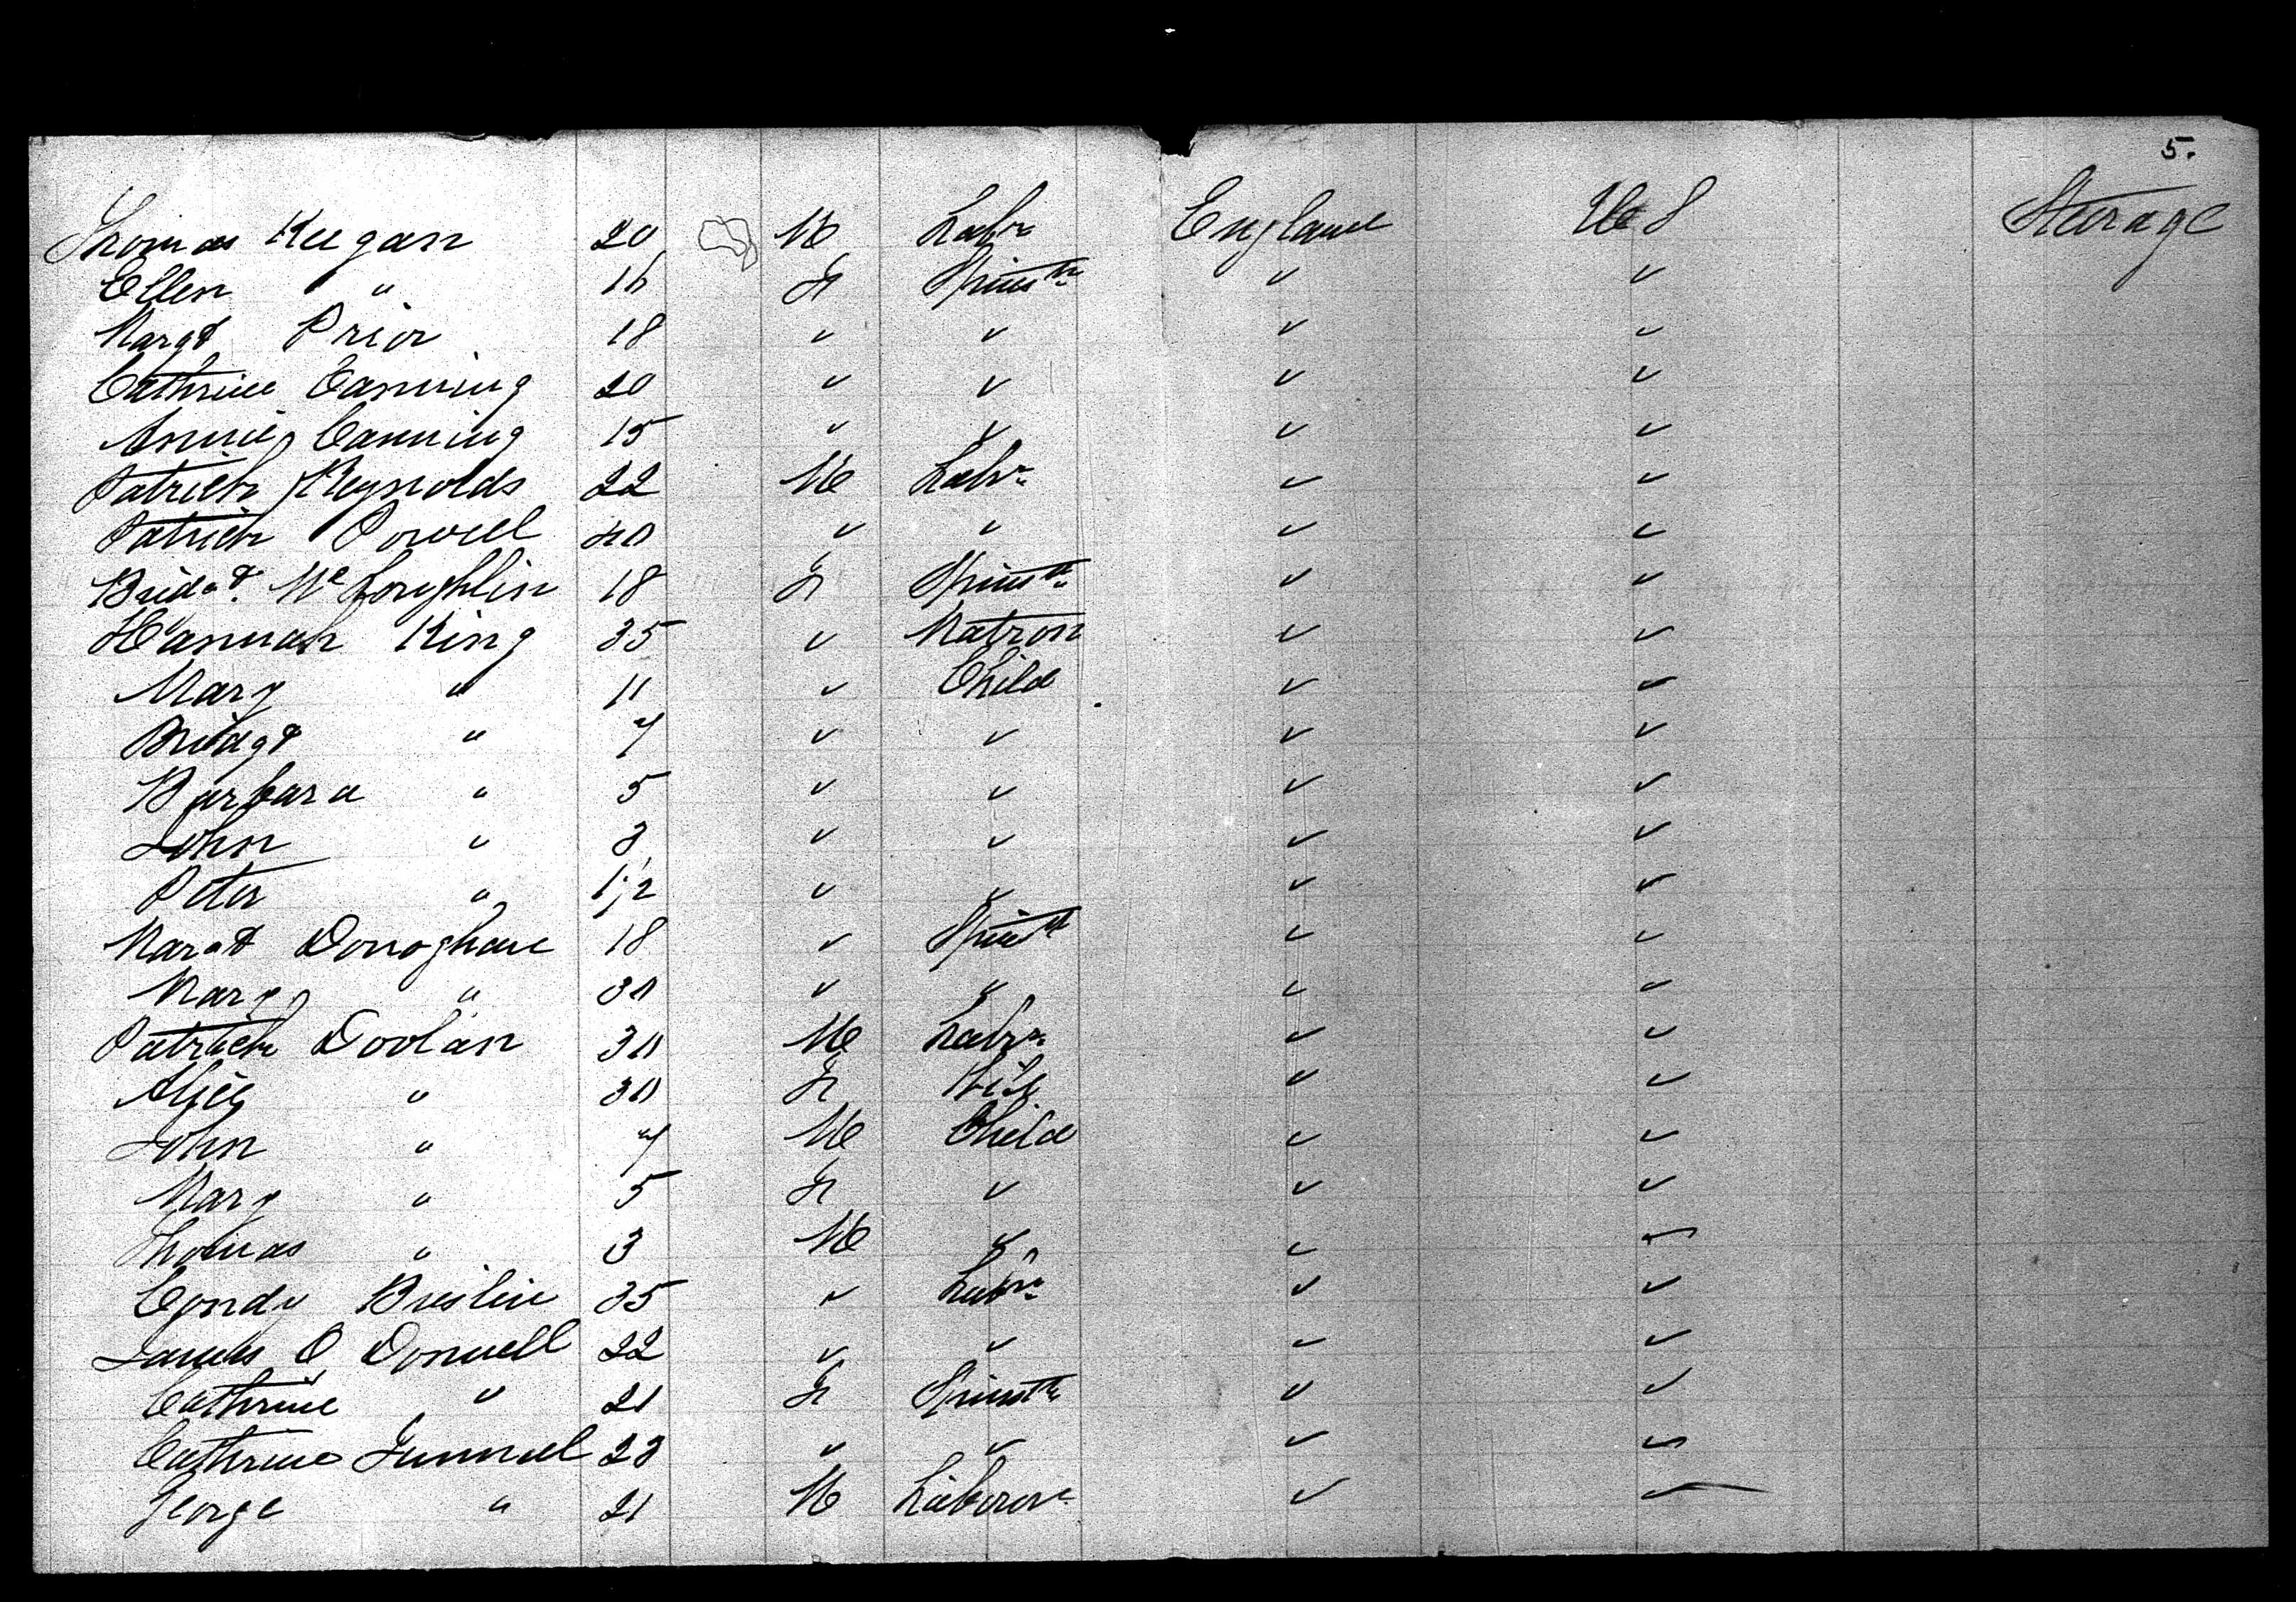 5.
Thomas Keegan 20 M Labr England U S Steerage
Ellen " 16 F Spinstr " "
Margt Prior 18 " " " "
Cathrine Canning 20 " " " "
Annie Canning 15 " " " "
Patrick Reynolds 22 M Labr " "
Patrick Powell 40 " " " "
Bridgt. McLoughlin 18 F Spinstr " "
Hannah King 35 " Matron " "
Mary " 11 " Child " "
Bridgt " 7 " " " "
Barbara " 5 " " " "
John " 3 " " " "
Peter " 1/2 " " " "
Margt Donoghue 18 " Spinst " "
Mary " 30 " " " "
Patrick Doolan 30 M Labr " "
Alice " 30 F Wife " "
John " 7 M Child " "
Mary " 5 F " " "
Thomas " 3 M " " "
Condy Breslin 35 " Labr " "
James O Donnell 22 " " " "
Cathrine " 21 F Spinstr " "
Cathrine 23 " " " "
George " 21 M Laborer " "